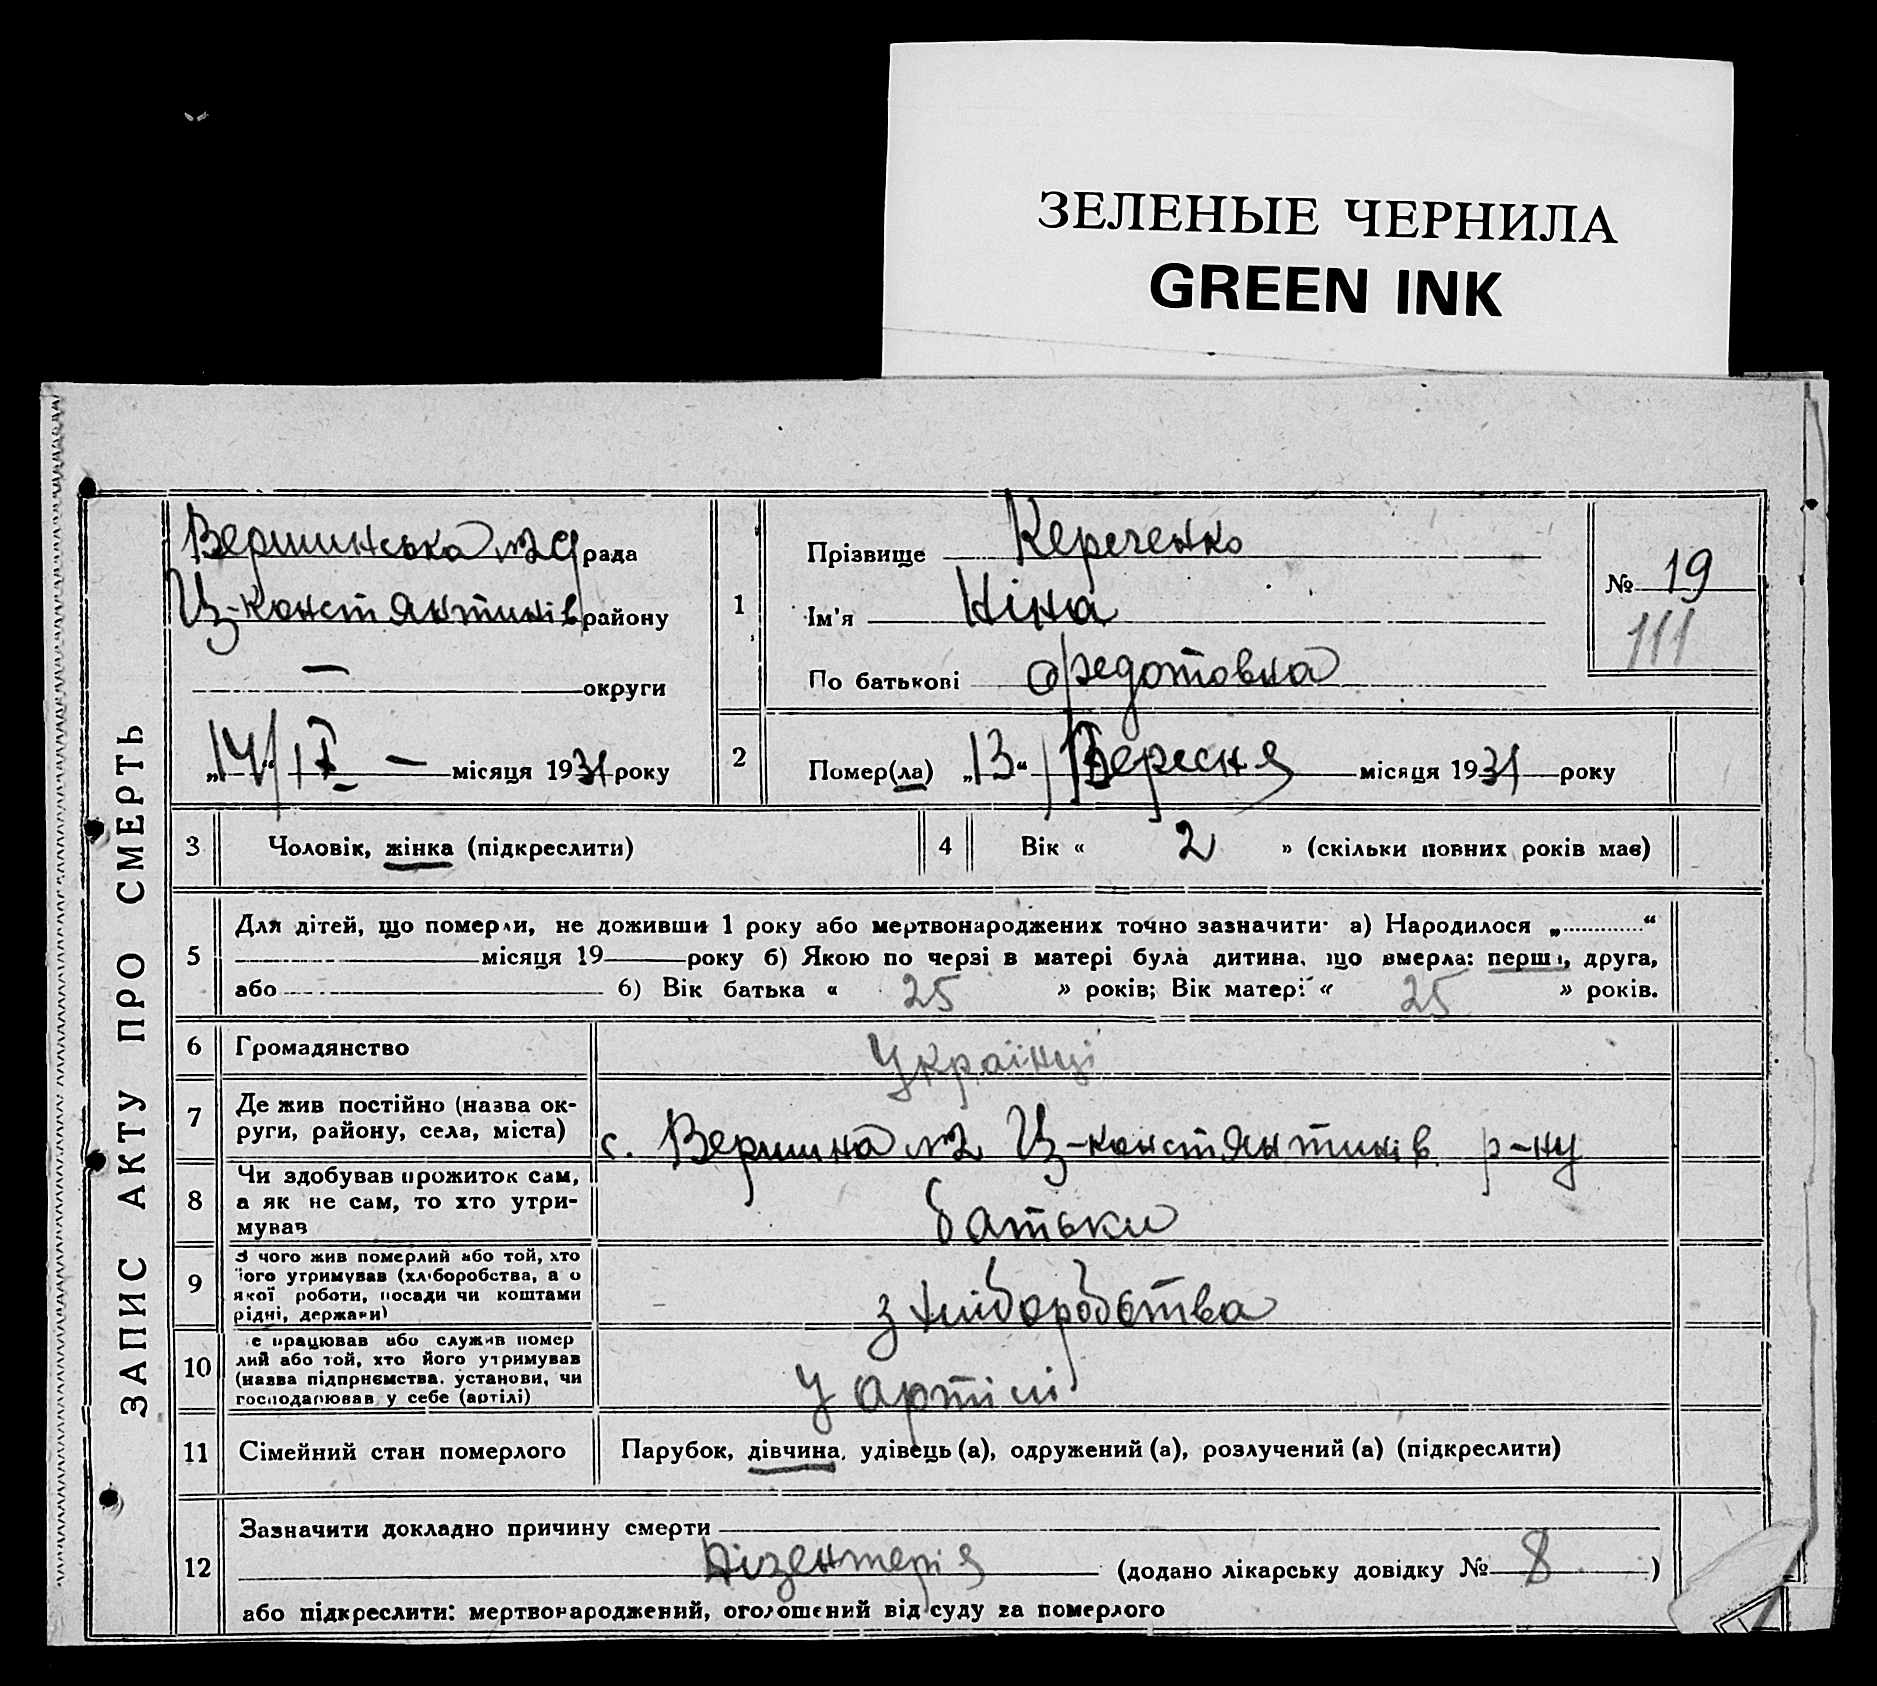 ЗЕЛЕНЫЕ ЧЕРНИЛА
GREEN INK
ЗАПИС АКТУ ПРО СМЕРТЬ
Вершинська №2 рада
Ц-констянтинів району
— округи
„14“ IX — місяця 1931 року
1
Прізвище Кереченко
Ім'я Ніна
По батькові Федотовна
№ 19
111
2
Помер(ла) „13“ Вересня місяця 1931 року
3 Чоловік, жінка (підкреслити)
4 Вік « 2 » (скільки повних років має)
5
Для дітей, що померли, не доживши 1 року або мертвонароджених точно зазначити· а) Народилося „............“
місяця 19 року б) Якою по черзі в матері була дитина, що вмерла: перша, друга,
або 6) Вік батька « 25 » років; Вік матері « 25 » років.
6 Громадянство Українці
7 Де жив постійно (назва ок-
руги, району, села, міста) с. Вершина №2 Ц-констянтинів р-ну
8 Чи здобував прожиток сам,
а як не сам, то хто утри-
мував батьки
9 З чого жив померлий або той, хто
його утримував (хліборобства, а о
якої роботи, посади чи коштами
рідні, держави) з хліборобства
10 е працював або служив помер
лий або той, хто його утримував
(назва підприємства, установи, чи
господарював у себе (артілі) У артілі
11 Сімейний стан померлого Парубок, дівчина, удівець (а), одружений (а), розлучений (а) (підкреслити)
12 Зазначити докладно причину смерти
Дізентерія (додано лікарську довідку № 8 )
або підкреслити: мертвонароджений, оголошений від суду за померлого